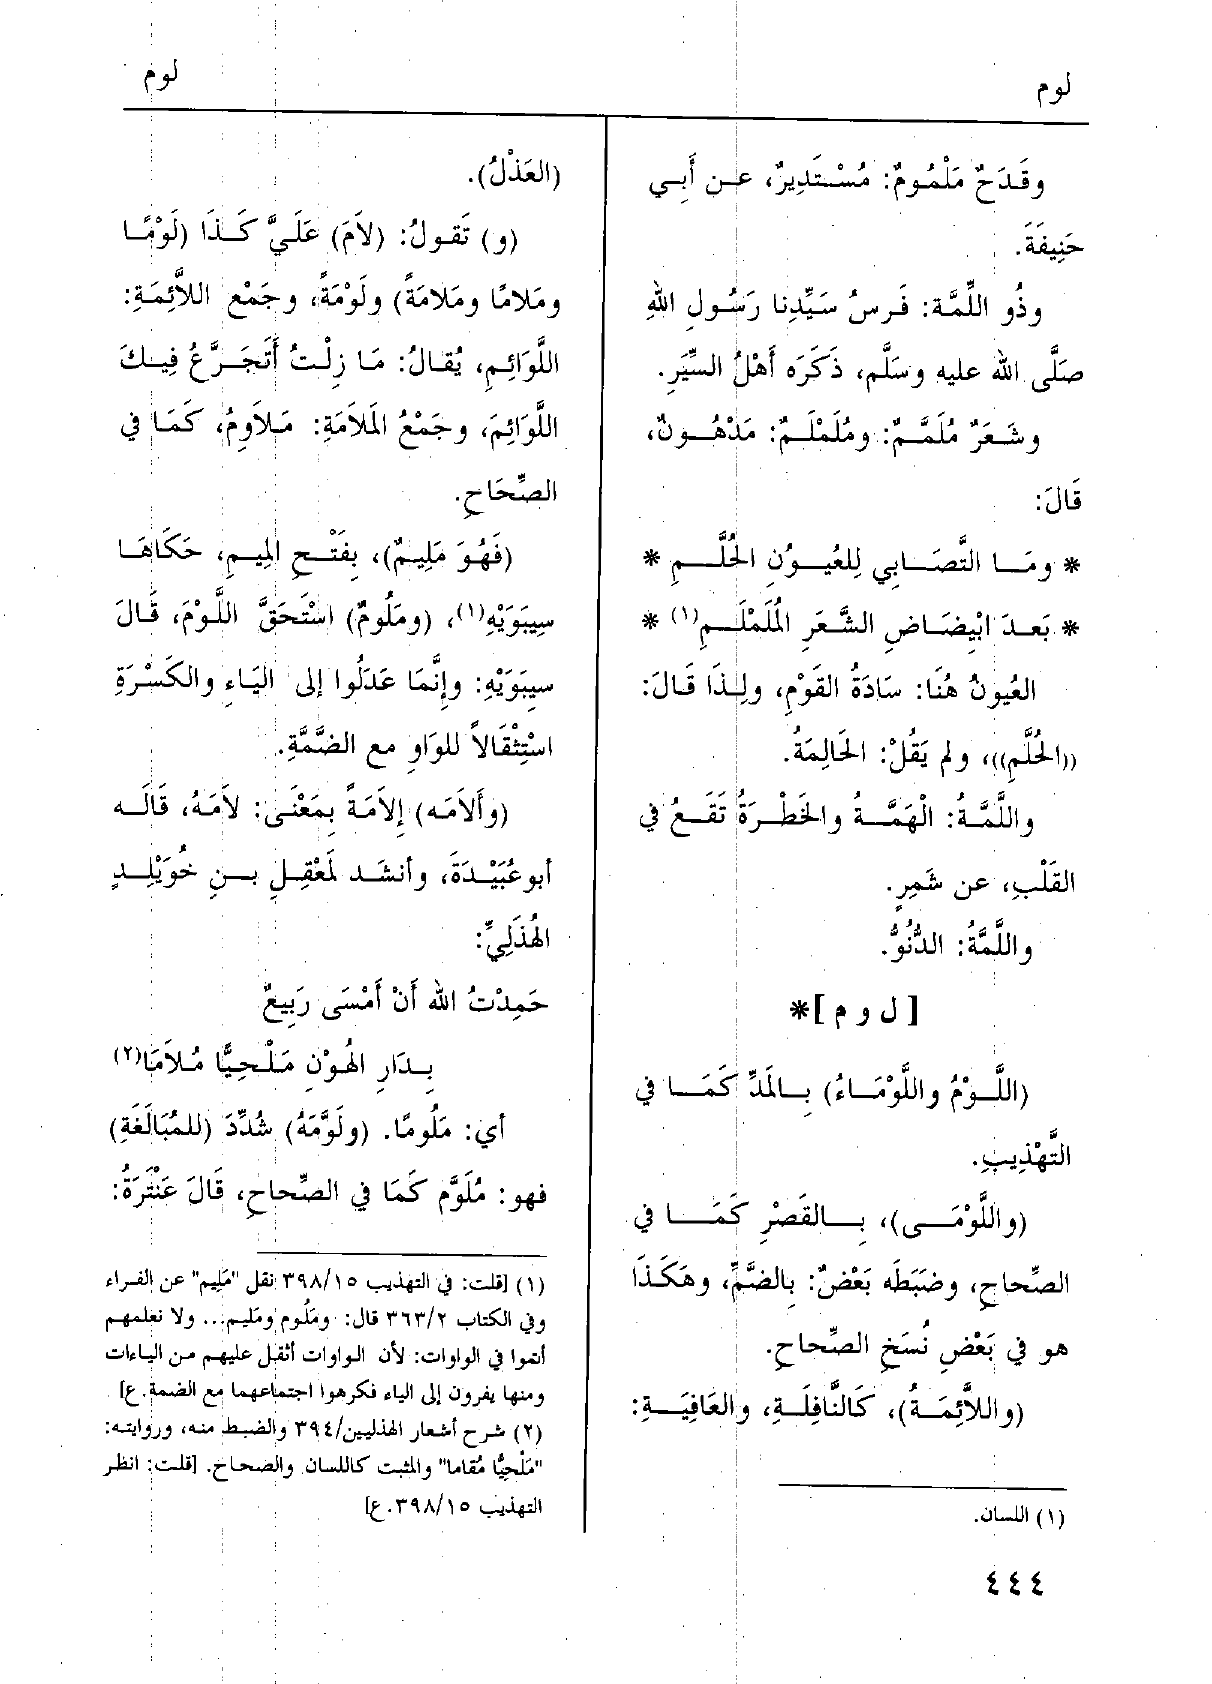 لوم
لوم
وقَدَحٌ مَلْمُومٌ: مُسْتَدِيرٌ، عن أَبي
حَنِيفَةَ.
وذُو اللِّمَّة: فَرسُ سَيِّدِنا رَسُولِ اللهِ
صَلَّى الله عليه وسَلَّم، ذَكَرَه أَهْلُ السِّيَرِ.
وشَعَرٌ مُلَمَّمٌ: ومُلَمْلَمٌ: مَدْهُونٌ،
قَالَ:
* ومَا التَّصَابِي لِلعُيونِ الحُلَّمِ *
* بَعدَ ابْيِضَاضِ الشَّعَرِ المُلَمْلَمِ(١) *
العُيونُ هُنَا: سَادَةُ القَوْمِ، ولِذَا قَالَ:
((الحُلَّمِ))، ولم يَقُلْ: الحَالِمَةُ.
واللَّمَّةُ: الْهَمَّةُ والخَطْرَةُ تَقَعُ في
القَلْبِ، عن شَمِرٍ.
واللَّمَّةُ: الدُّنُوُّ.
[ ل و م ]*
(اللَّوْمُ واللَّوْمَاءُ) بالمَدِّ كَمَا في
التَّهْذِيبِ.
(واللَّوْمَى)، بالقَصْرِ كَمَا في
الصِّحاحِ، وضَبَطَه بَعْضٌ: بِالضَّمِّ، وهَكَذَا
هو في بَعْضِ نُسَخِ الصِّحاحِ.
(واللاَّئِمَةُ)، كَالنَّافِلَةِ، والعَافِيَةِ:
(١) اللسان.
٤٤٤
(العَذْلُ).
(و) تَقولُ: (لاَمَ) عَلَيَّ كَذَا (لَوْمًا
ومَلامًا ومَلامَةً) ولَوْمَةً، وجَمْع اللاَّئِمَةِ:
اللَّوَائِمِ، يُقالُ: مَا زِلْتُ أَتَجَرَّعُ فِيكَ
اللَّوَائِمَ، وجَمْعُ المَلاَمَةِ: مَلاَوِمُ، كَمَا في
الصِّحَاحِ.
(فَهُوَ مَلِيمٌ)، بِفَتْحِ المِيمِ، حَكَاهَا
سِيبَوَيْهِ(١)، (ومَلُومٌ) اسْتَحَقَّ اللَّوْمَ، قَالَ
سِيبَوَيْهِ: وإِنَّمَا عَدَلُوا إلى اليَاءِ والكَسْرَةِ
اسْتِثْقَالاً للوَاوِ مع الضَّمَّةِ.
(وأَلاَمَه) إِلاَمَةً بِمَعْنَى: لاَمَهُ، قَالَه
أبو عُبَيْدَةَ، وأنشَد لمَعْقِلِ بنِ خُوَيْلِدٍ
الهُذَلِيِّ:
حَمِدْتُ الله أَنْ أَمْسَى رَبِيعٌ
بِدَارِ الهُونِ مَلْحِيًّا مُلاَمَا(٢)
أي: مَلُومًا. (ولَوَّمَهُ) شُدِّدَ (للمُبَالَغَةِ)
فهو: مُلَوَّم كَمَا في الصِّحاحِ، قَالَ عَنْتَرَةُ:
(١) [قلت: في التهذيب ٣٩٨/١٥ نقل "مَلِيم" عن الفراء
وفي الكتاب ٣٦٣/٢ قال: ومَلُوم ومَلِيم... ولا نعلمهم
أتموا في الواوات: لأن الواوات أثقل عليهم من الياءات
ومنها يفرون إلى الياء فكرهوا اجتماعهما مع الضمة. ع]
(٢) شرح أشعار الهذليين/٣٩٤ والضبط منه، وروايته:
"مَلْحِيًّا مُقاما" والمثبت كاللسان والصحاح. [قلت: انظر
التهذيب ٣٩٨/١٥. ع]